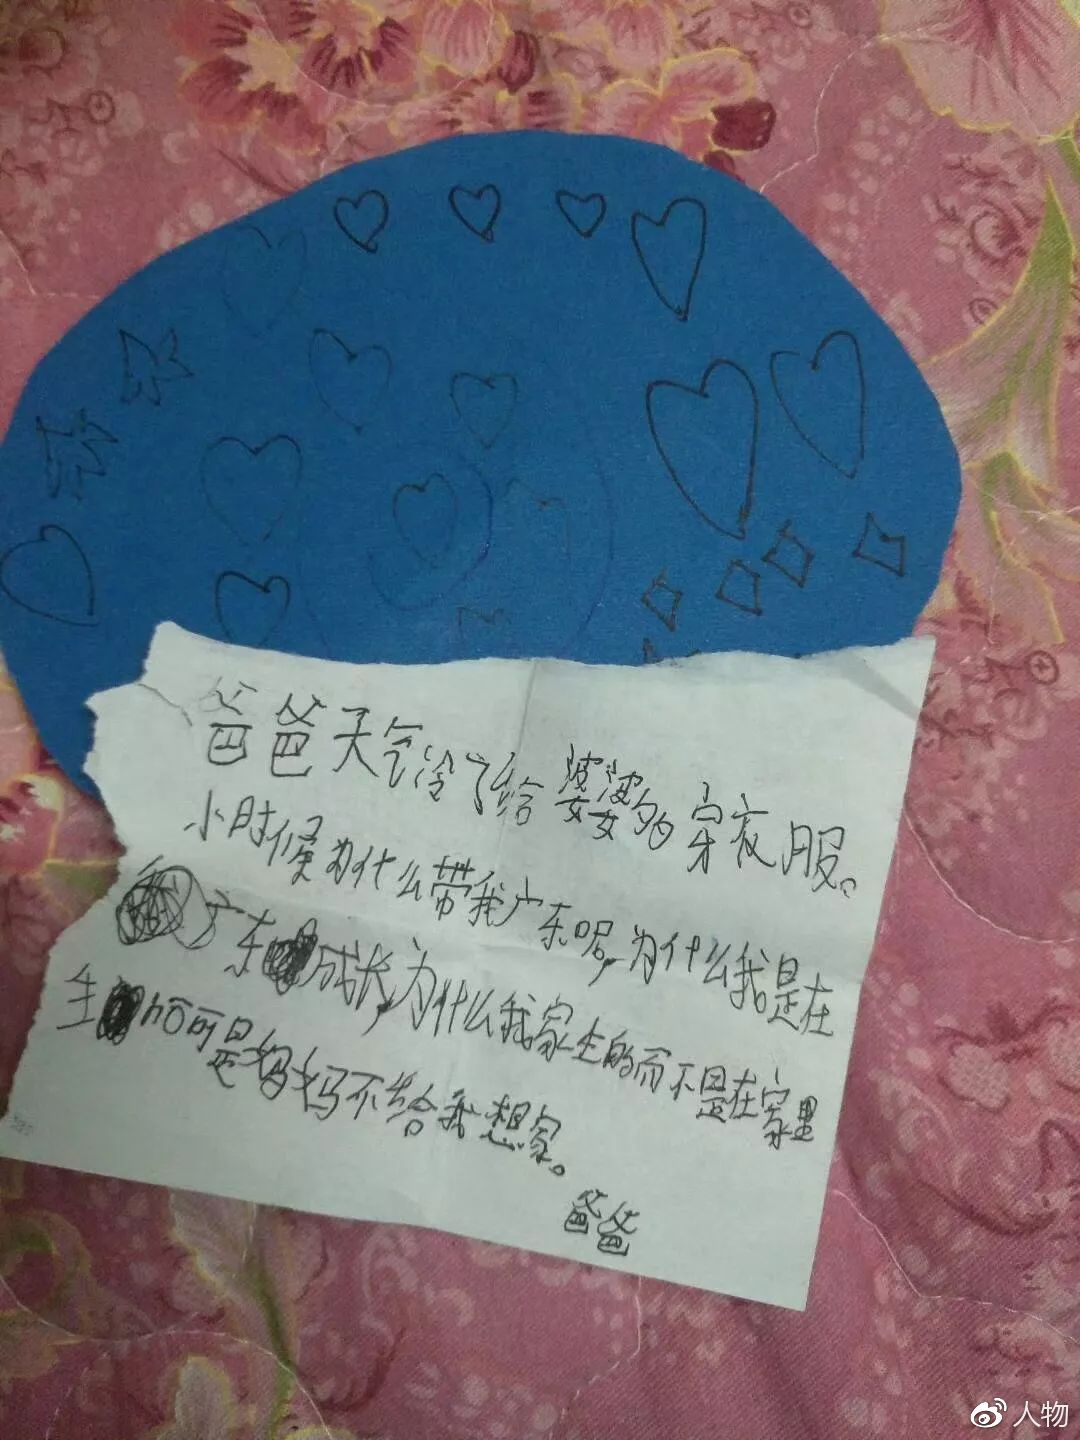 爸爸天气冷了给婆婆多穿衣服。
小时候为什么带我广东呢,为什么我是在
广东成长,为什么我家生的而不是在家里
生 可是妈妈不给我想家。
爸爸
人物